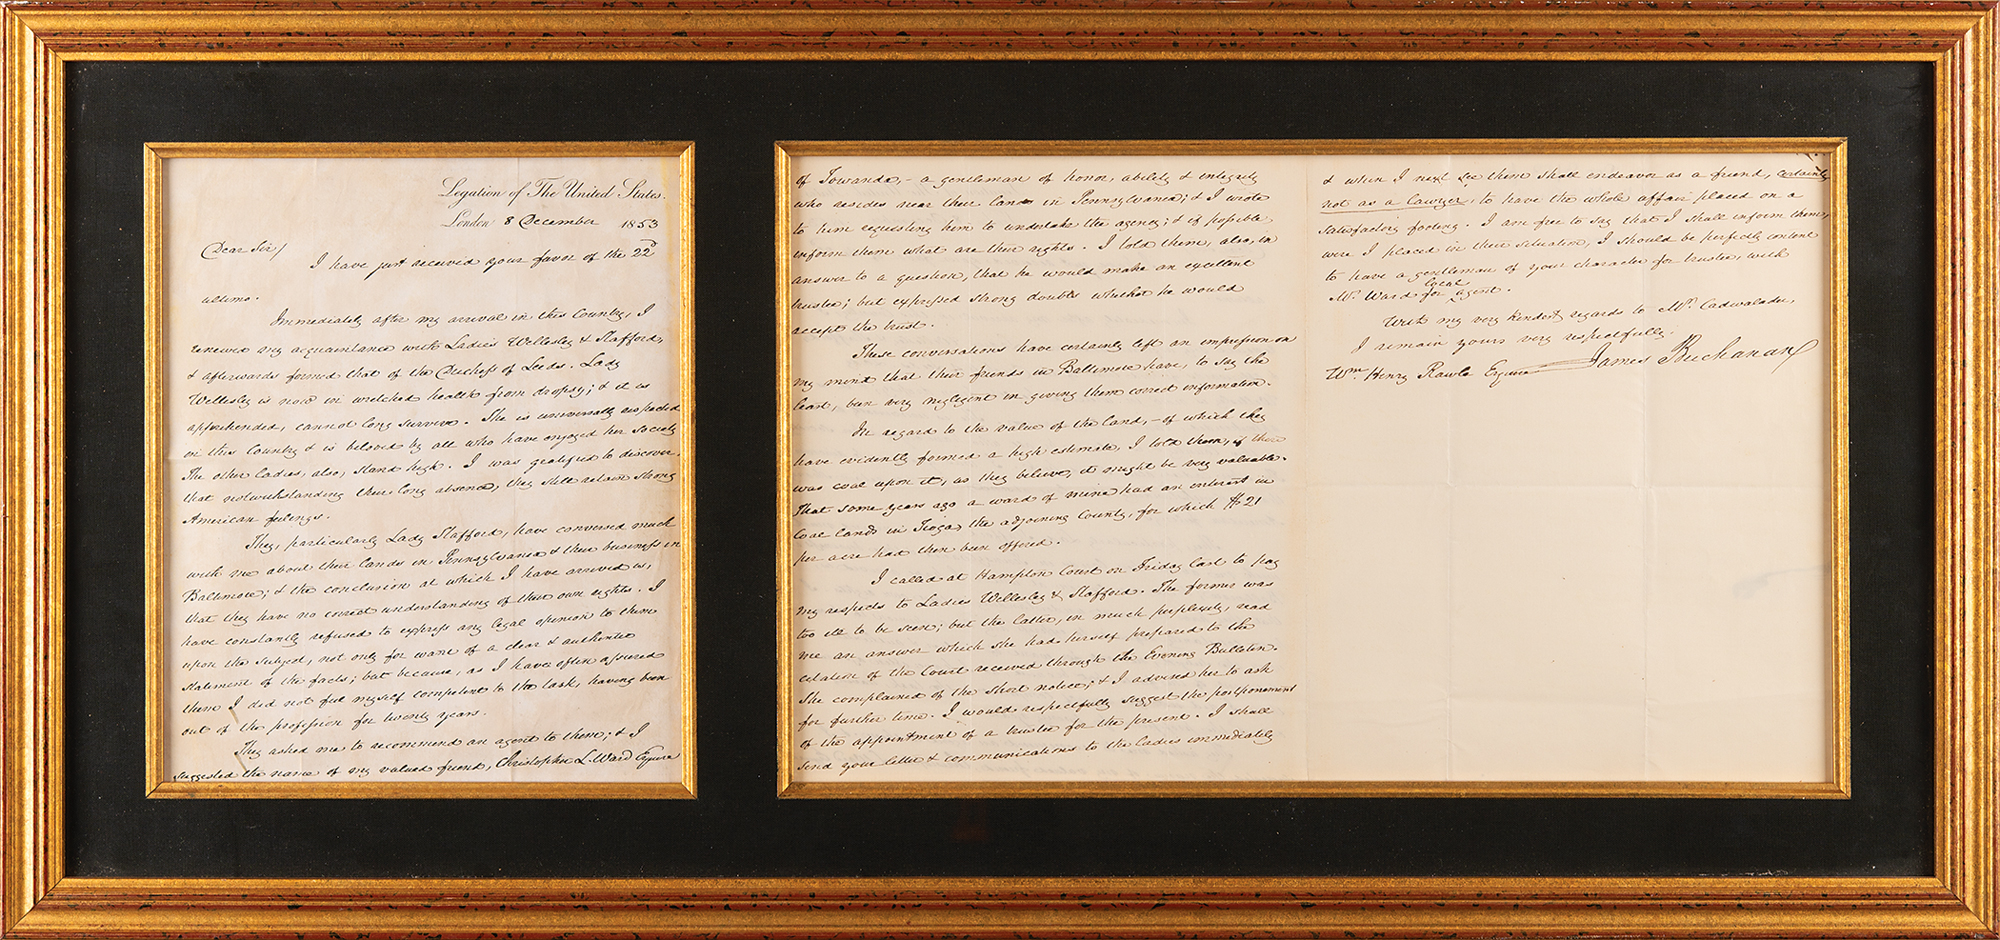 Legation of The United States.
London 8 December 1853
Dear Sir/
I have just received your favor of the 22d
ultimo.
Immediately after my arrival in this Country, I
renewed my acquaintance with Ladies Wellesley & Stafford,
& afterwards formed that of the Duchess of Leeds. Lady
Wellesley is now in wretched health from dropsy; & it is
apprehended, cannot long survive. She is universally respected
in this Country & is beloved by all who have enjoyed her society
The other Ladies, also, stand high. I was gratified to discover,
that notwithstanding their long absence, they still retain strong
American feelings.
They, particularly Lady Stafford, have conversed much
with me about their lands in Pennsylvania & their business in
Baltimore; & the conclusion at which I have arrived is,
that they have no correct understanding of their own rights. I
have constantly refused to express any legal opinion to them
upon the subject, not only for want of a clear & authentic
statement of the facts; but because, as I have often assured
them I did not feel myself competent to the task, having been
out of the profession for twenty years.
They asked me to recommend an agent to them; & I
suggested the name of my valued friend, Christopher L. Ward Esquire
of Towanda, - a gentleman of honor, ability & integrity
who resides near their lands in Pennsylvania; & I wrote
to him requesting him to undertake the agency; & if possible
inform them what are their rights. I told them, also, in
answer to a question, that he would make an excellent
trustee; but expressed strong doubts whether he would
accept the trust.
These conversations have certainly left an impression on
my mind that their friends in Baltimore have, to say the
least, been very negligent in giving them correct information.
In regard to the value of the land, - of which they
have evidently formed a high estimate, I told them, if there
was coal upon it, as they believe, it might be very valuable.
That some years ago a ward of mine had an interest in
Coal lands in Tioga the adjoining County, for which $21
per acre had then been offered.
I called at Hampton Court on Friday last to pay
my respects to Ladies Wellesley & Stafford. The former was
too ill to be seen; but the latter, in much perplexity, read
me an answer which she had herself prepared to the
citation of the Court received through the Evening Bulletin.
She complained of the short notice; & I advised her to ask
for further time. I would respectfully suggest the postponement
of the appointment of a trustee for the present. I shall
send your letter & communications to the Ladies immediately
& when I next see them shall endeavor as a friend, certainly
not as a Lawyer, to have the whole affair placed on a
satisfactory footing. I am free to say that I shall inform them,
were I placed in their situation, I should be perfectly content
to have a gentleman of your character for trustee, with
Mr. Ward for local agent.
With my very kindest regards to Mr. Cadwalader,
I remain yours very respectfully.
James Buchanan
Wm. Henry Rawle Esquire